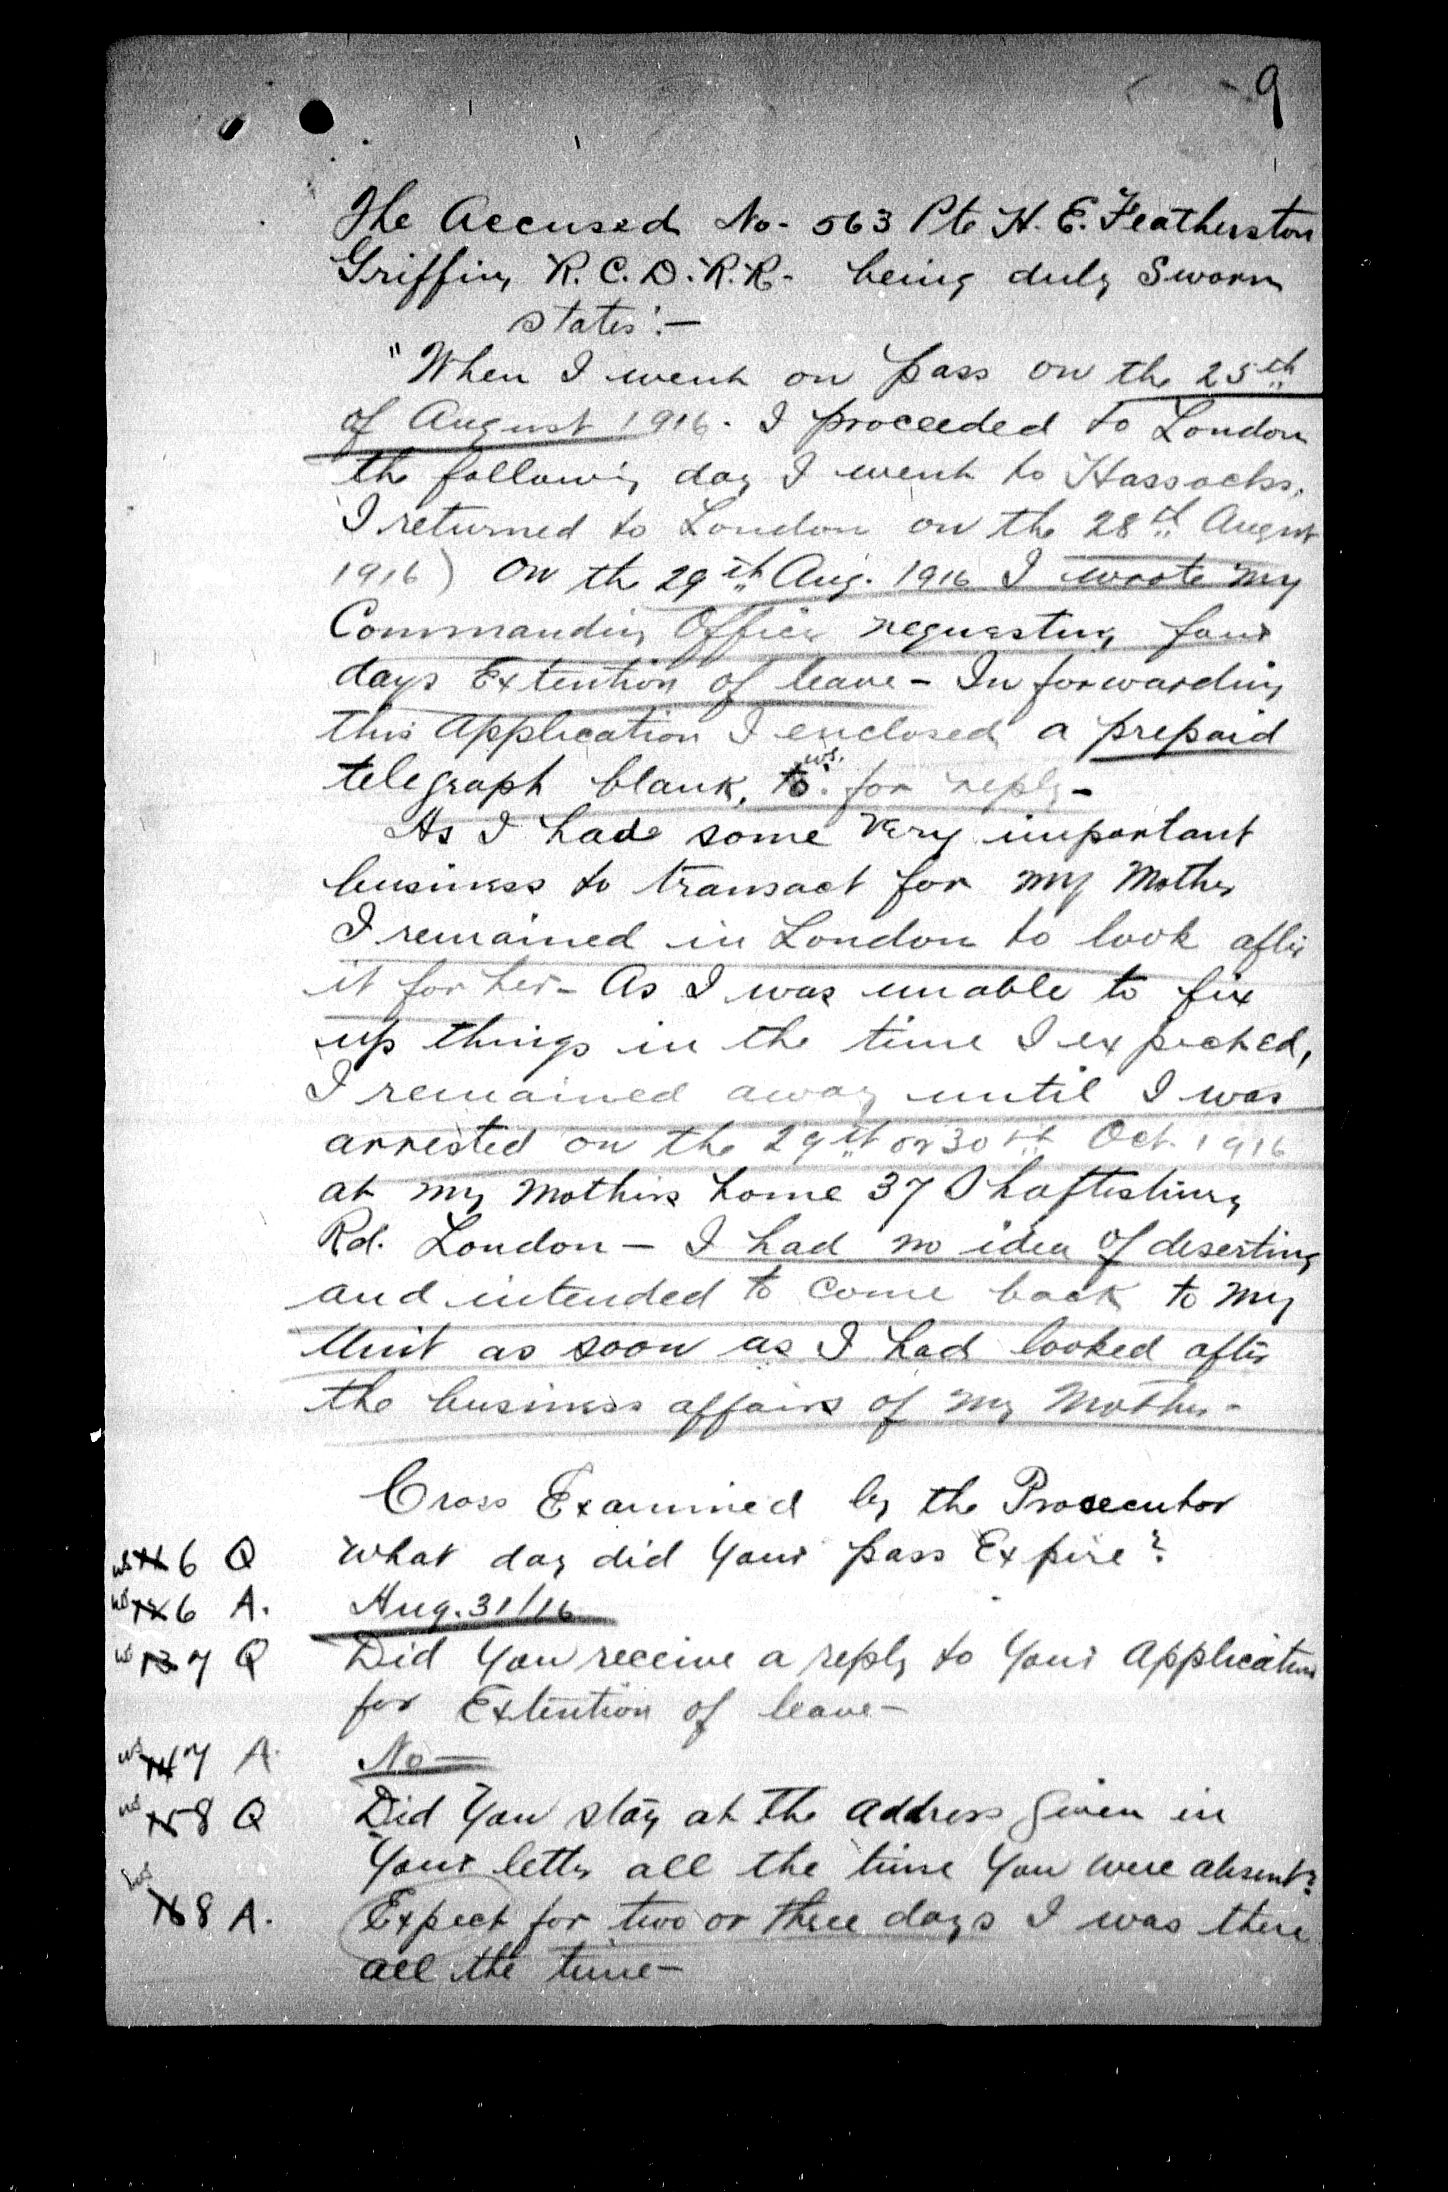 9
The Accused No. 563 Pte H. E. Featherston
Griffin, R.C.D.R.R. being duly Sworn
states:—
"When I went on pass on the 25th
of August 1916. I proceeded to London
the following day I went to Hassocks.
I returned to London on the 28th August
1916) On the 29th Aug. 1916 I wrote my
Commanding Officer requesting four
days Extention of leave - In forwarding
this Application I enclosed a prepaid
telegraph blank, to ws. for reply -
As I had some very important
business to transact for my Mother
I remained in London to look after
it for her - As I was unable to fix
up things in the time I expected,
I remained away until I was
arrested on the 29th or 30th Oct. 1916
at my Mothers home 37 Shaftesbury
Rd. London — I had no idea of deserting
and intended to come back to my
Unit as soon as I had looked after
the business affairs of my Mother -
Cross Examined by the Prosecutor
ws 11 6 Q What day did your pass Expire?
ws 12 6 A. Aug. 31/16
ws 13 7 Q Did You receive a reply to Your Application
for Extention of leave -
ws 14 7 A. No —
ws 15 8 Q Did You stay at the address given in
Your letter all the time You were absent?
ws 16 8 A. Expect for two or three days I was there
all the time -